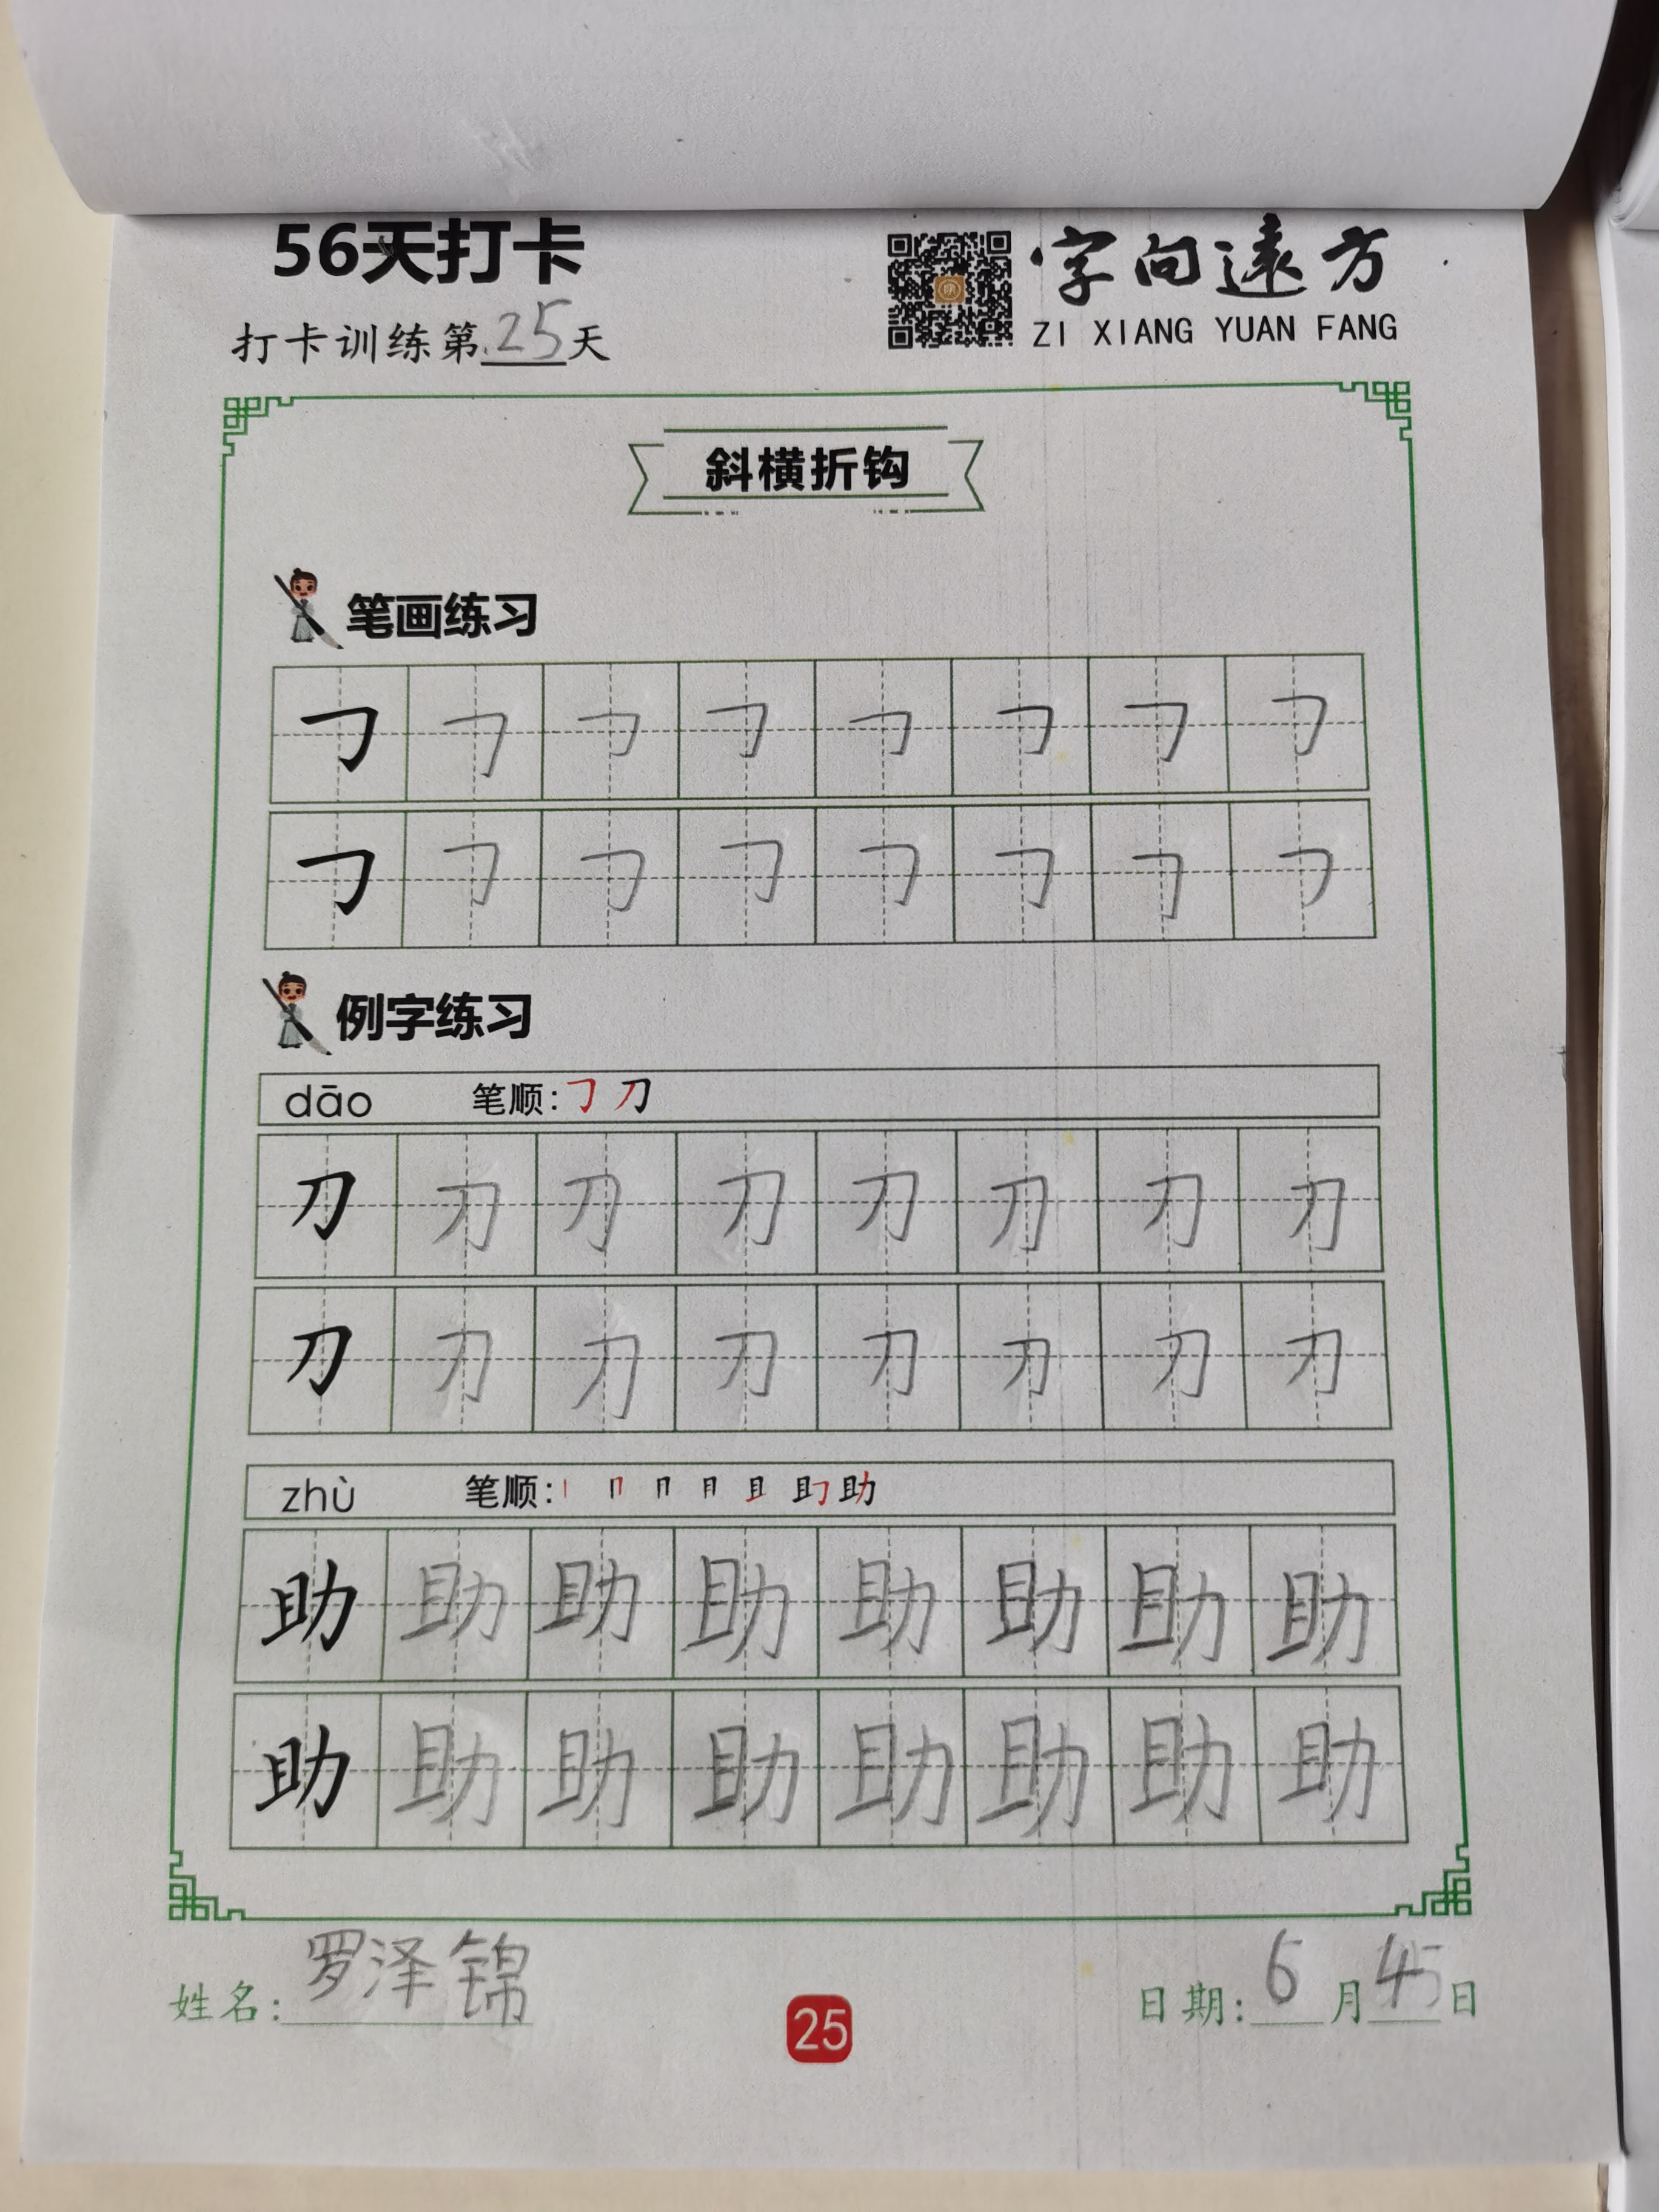 56天打卡
字向遠方
打卡训练第25天
ZI XIANG YUAN FANG
斜横折钩
笔画练习
㇆ ㇆ ㇆ ㇆ ㇆ ㇆ ㇆ ㇆
㇆ ㇆ ㇆ ㇆ ㇆ ㇆ ㇆ ㇆
例字练习
dāo 笔顺:㇆ 刀
刀 刀 刀 刀 刀 刀 刀 刀
刀 刀 刀 刀 刀 刀 刀 刀
zhù 笔顺: 助
助 助 助 助 助 助 助 助
助 助 助 助 助 助 助 助
姓名:罗泽锦
25
日期:6月 日